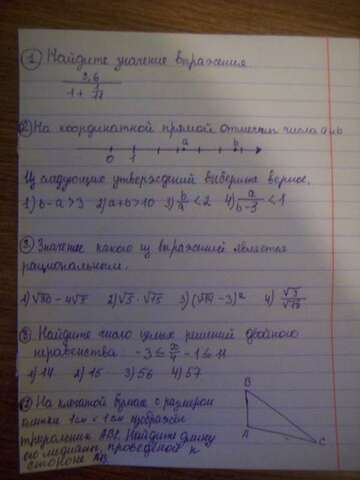 ① Найдите значение выражения
3,6
1 + 1/17
② На координатной прямой отмечены числа a и b
0 1 a b
Из следующих утверждений выберите верное.
1) b - a > 3 2) a+b>10 3) b/a < 2 4) a/(b-3) < 1
③ Значение какого из выражений является
рациональным.
2) √5 · √15 4) √3/√12
Найдите число целых решений двойного
неравенства: -3 ≤ x/4 - 1 ≤ 11
1) 14 2) 15 3) 56 4) 57
На клетчатой бумаге с размером
клетки 1см × 1см изображён
треугольник ABC. Найдите длину
его медианы, проведеной к
стороне AB
B
A
C